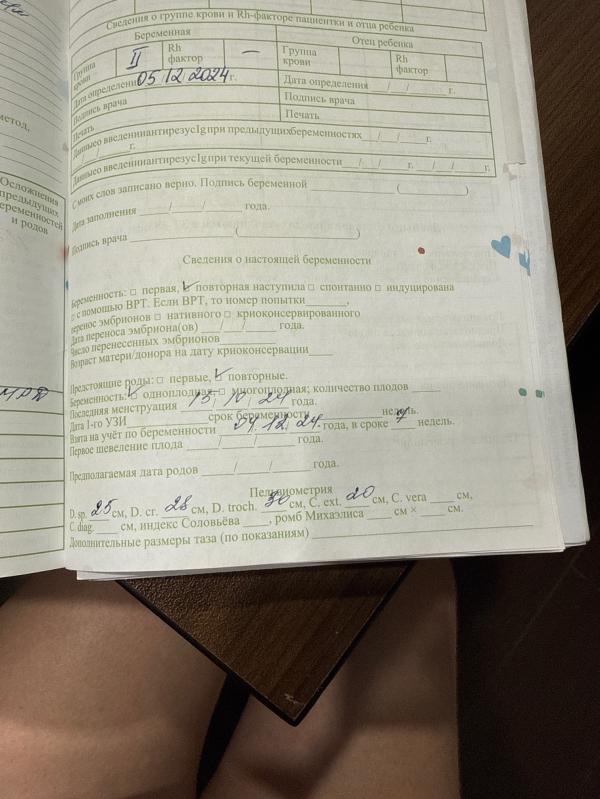 Сведения о группе крови и Rh-факторе пациентки и отца ребенка
Беременная
Отец ребенка
Группа крови II Rh фактор — Группа крови Rh фактор
Дата определения 05 12 2024 г. Дата определения __/__/__ г.
Подпись врача Подпись врача
Печать Печать
Данные о введении антирезус Ig при предыдущих беременностях __/__/__ г.
__/__/__ г.
Данные о введении антирезус Ig при текущей беременности __/__/__ г. __/__/__ г.
С моих слов записано верно. Подпись беременной ______ (______)
Дата заполнения __/__/__ года.
Подпись врача ______ (______)
Сведения о настоящей беременности
Беременность: □ первая, ☑ повторная наступила □ спонтанно □ индуцирована
□ с помощью ВРТ. Если ВРТ, то номер попытки______,
перенос эмбрионов □ нативного □ криоконсервированного
Дата переноса эмбриона(ов) __/__/__ года.
Число перенесенных эмбрионов______
Возраст матери/донора на дату криоконсервации____
Предстоящие роды: □ первые, ☑ повторные.
Беременность: ☑ одноплодная, □ многоплодная; количество плодов ____
Последняя менструация 15, 10, 24 года.
Дата 1-го УЗИ______ срок беременности______ недель.
Взята на учёт по беременности 04, 12, 24. года, в сроке 7 недель.
Первое шевеление плода __/__/__ года.
Предполагаемая дата родов __/__/__ года.
Пельвиометрия
D. sp. 25 см, D. cr. 28 см, D. troch. 30 см, C. ext. 20 см, C. vera ____ см,
C. diag.____ см, индекс Соловьёва ____, ромб Михаэлиса ____ см × ____ см.
Дополнительные размеры таза (по показаниям) ______
метод,
Осложнения
предыдущих
беременностей
и родов